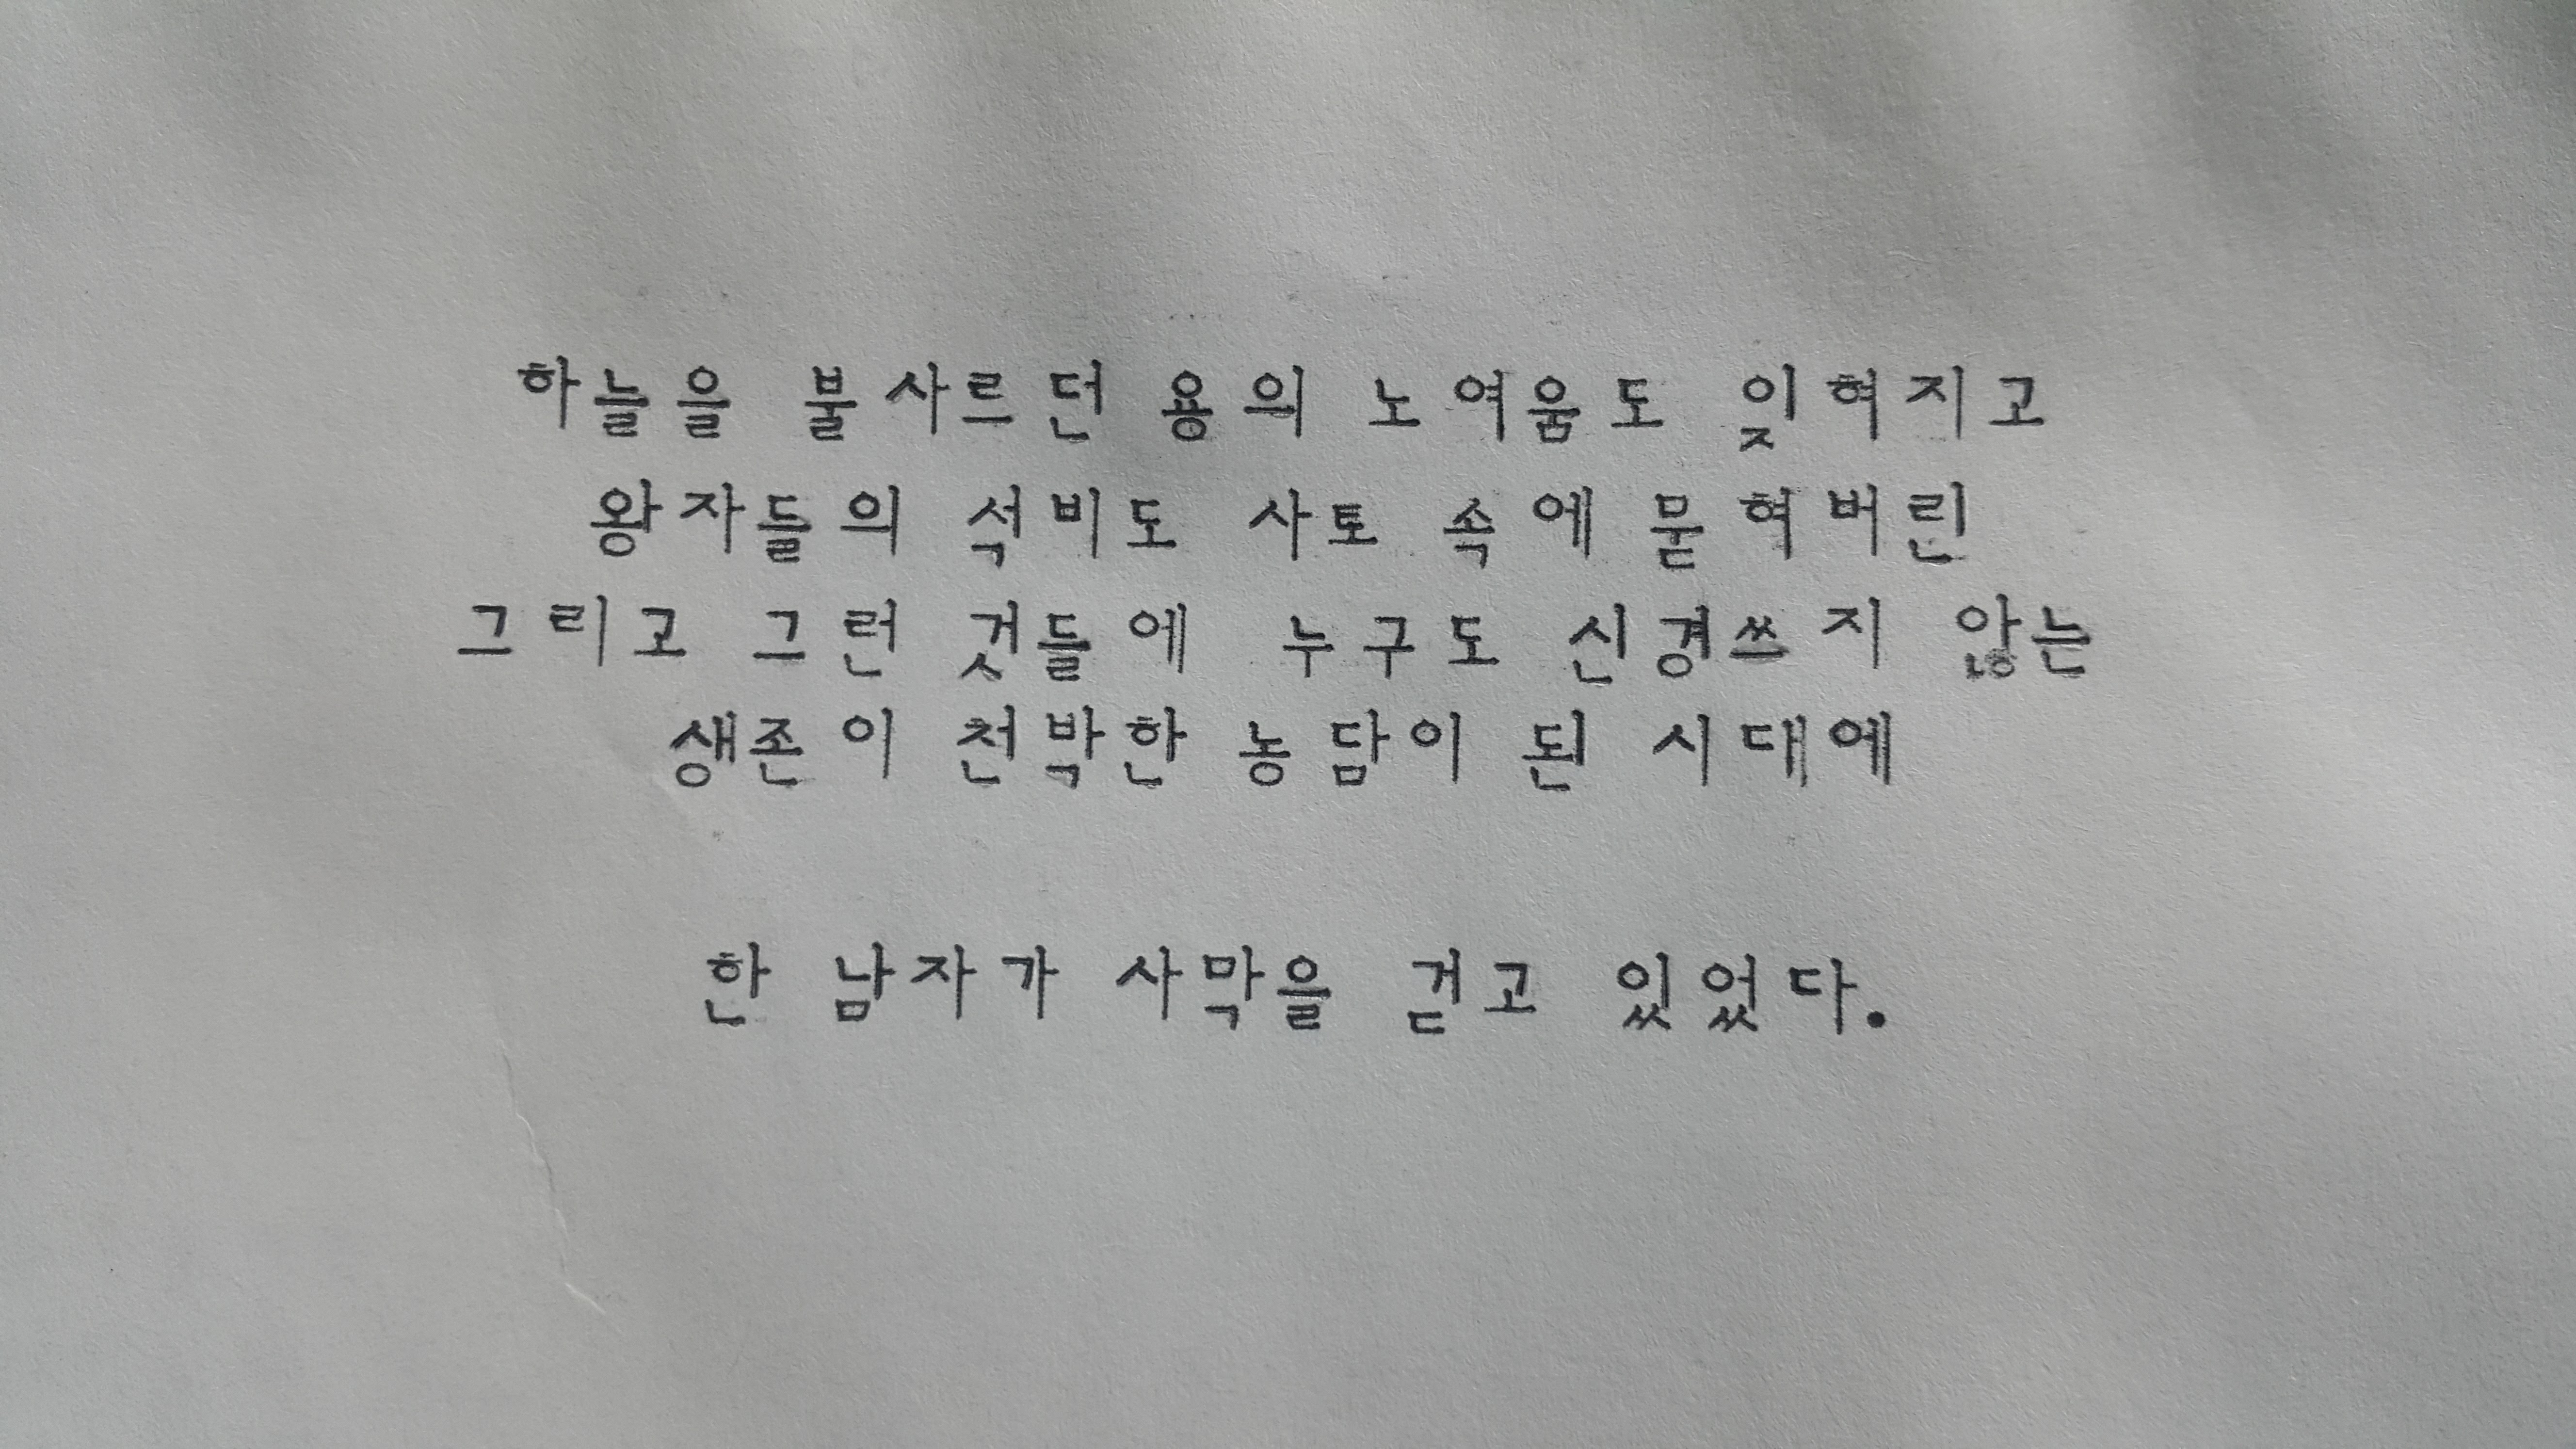 하늘을 불사르던 용의 노여움도 잊혀지고
왕자들의 석비도 사토 속에 묻혀버린
그리고 그런 것들에 누구도 신경쓰지 않는
생존이 천박한 농담이 된 시대에
한 남자가 사막을 걷고 있었다.